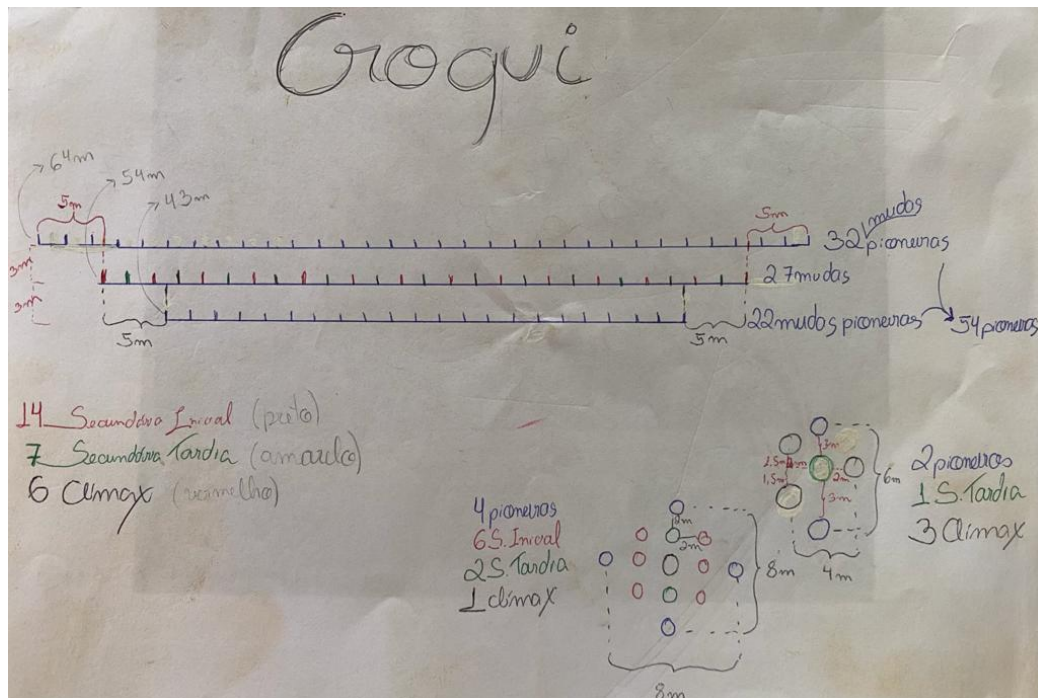 Croqui
64m
54m
43m
5m
5m
32 mudas pioneiras
3m
27 mudas
3m
22 mudas pioneiras
54 pioneiras
5m
5m
14 Secundária Inicial (preto)
7 Secundária Tardia (amarelo)
6 Clímax (vermelho)
4 pioneiras
6 S. Inicial
2 S. Tardia
1 clímax
2m
2m
8m
8m
3m
1.5m
1,5m
2m
3m
6m
4m
2 pioneiras
1 S. Tardia
3 Clímax